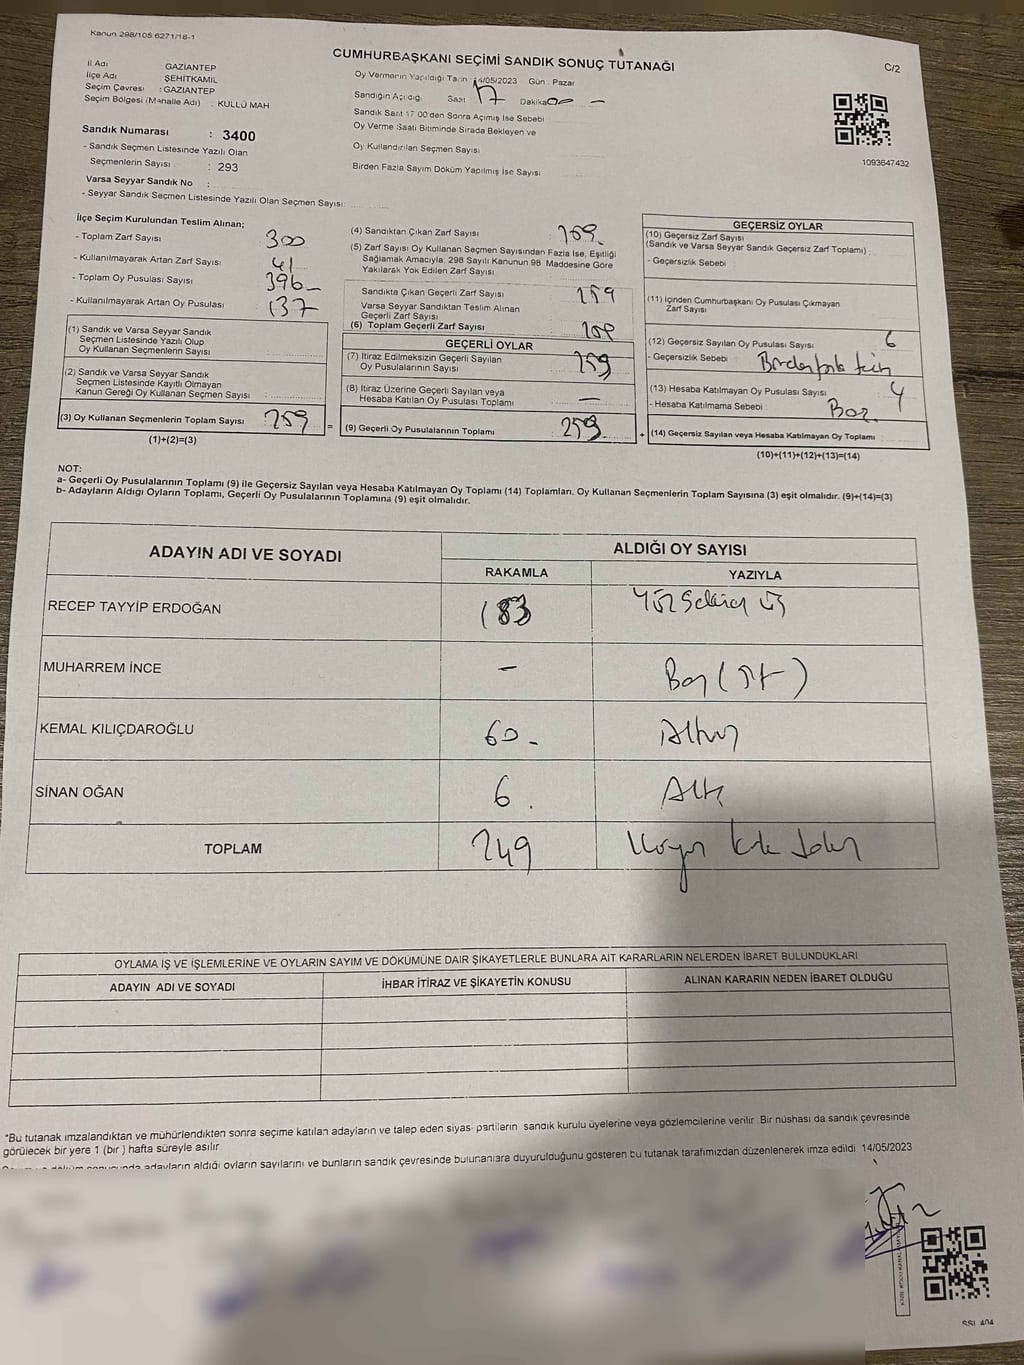 Kanun 298/105 6271/16-1
CUMHURBAŞKANI SEÇİMİ SANDIK SONUÇ TUTANAĞI
C/2
İl Adı GAZİANTEP
İlçe Adı ŞEHİTKAMİL
Seçim Çevresi : GAZİANTEP
Seçim Bölgesi (Mahalle Adı) . KULLÜ MAH
Oy Vermenin Yapıldığı Tarih 14/05/2023 Gün . Pazar
Sandığın Açıldığı Saat 17 Dakika 00 –
Sandık Saat 17 00'den Sonra Açımış İse Sebebi
Oy Verme Saati Bitiminde Sırada Bekleyen ve
Oy Kullandırılan Seçmen Sayısı
Birden Fazla Sayım Döküm Yapılmış İse Sayısı
1093647432
Sandık Numarası : 3400
- Sandık Seçmen Listesinde Yazılı Olan
Seçmenlerin Sayısı : 293
Varsa Seyyar Sandık No :
- Seyyar Sandık Seçmen Listesinde Yazılı Olan Seçmen Sayısı:
İlçe Seçim Kurulundan Teslim Alınan;
- Toplam Zarf Sayısı 300
- Kullanılmayarak Artan Zarf Sayısı 41
- Toplam Oy Pusulası Sayısı 396
- Kullanılmayarak Artan Oy Pusulası 137
(1) Sandık ve Varsa Seyyar Sandık
Seçmen Listesinde Yazılı Olup
Oy Kullanan Seçmenlerin Sayısı
(2) Sandık ve Varsa Seyyar Sandık
Seçmen Listesinde Kayıtlı Olmayan
Kanun Gereği Oy Kullanan Seçmen Sayısı :
(3) Oy Kullanan Seçmenlerin Toplam Sayısı : 259
(1)+(2)=(3)
(4) Sandıktan Çıkan Zarf Sayısı : 259
(5) Zarf Sayısı Oy Kullanan Seçmen Sayısından Fazla İse, Eşitliği
Sağlamak Amacıyla; 298 Sayılı Kanunun 98 Maddesine Göre
Yakılarak Yok Edilen Zarf Sayısı
Sandıkta Çıkan Geçerli Zarf Sayısı 259
Varsa Seyyar Sandıktan Teslim Alınan
Geçerli Zarf Sayısı
(6) Toplam Geçerli Zarf Sayısı 259
GEÇERLİ OYLAR
(7) İtiraz Edilmeksizin Geçerli Sayılan
Oy Pusulalarının Sayısı 259
(8) İtiraz Üzerine Geçerli Sayılan veya
Hesaba Katılan Oy Pusulası Toplamı –
=
(9) Geçerli Oy Pusulalarının Toplamı 259
+
GEÇERSİZ OYLAR
(10) Geçersiz Zarf Sayısı
(Sandık ve Varsa Seyyar Sandık Geçersiz Zarf Toplamı) :
- Geçersizlik Sebebi
(11) İçinden Cumhurbaşkanı Oy Pusulası Çıkmayan
Zarf Sayısı
(12) Geçersiz Sayılan Oy Pusulası Sayısı 6
- Geçersizlik Sebebi
(13) Hesaba Katılmayan Oy Pusulası Sayısı 4
- Hesaba Katılmama Sebebi Boş
(14) Geçersiz Sayılan veya Hesaba Katılmayan Oy Toplamı
(10)+(11)+(12)+(13)=(14)
NOT:
a- Geçerli Oy Pusulalarının Toplamı (9) ile Geçersiz Sayılan veya Hesaba Katılmayan Oy Toplamı (14) Toplamları, Oy Kullanan Seçmenlerin Toplam Sayısına (3) eşit olmalıdır. (9)+(14)=(3)
b- Adayların Aldığı Oyların Toplamı, Geçerli Oy Pusulalarının Toplamına (9) eşit olmalıdır.
ADAYIN ADI VE SOYADI ALDIĞI OY SAYISI
RAKAMLA YAZIYLA
RECEP TAYYİP ERDOĞAN 183 Yüz Seksen üç
MUHARREM İNCE – Boş (Sıfır)
KEMAL KILIÇDAROĞLU 60 Altmış
SİNAN OĞAN 6 Altı
TOPLAM 249
OYLAMA İŞ VE İŞLEMLERİNE VE OYLARIN SAYIM VE DÖKÜMÜNE DAİR ŞİKAYETLERLE BUNLARA AİT KARARLARIN NELERDEN İBARET BULUNDUKLARI
ADAYIN ADI VE SOYADI İHBAR İTİRAZ VE ŞİKAYETİN KONUSU ALINAN KARARIN NEDEN İBARET OLDUĞU
*Bu tutanak imzalandıktan ve mühürlendikten sonra seçime katılan adayların ve talep eden siyasi partilerin sandık kurulu üyelerine veya gözlemcilerine verilir. Bir nüshası da sandık çevresinde
görülecek bir yere 1 (bir) hafta süreyle asılır.
adayların aldığı oyların sayılarını ve bunların sandık çevresinde bulunanlara duyurulduğunu gösteren bu tutanak tarafımızdan düzenlenerek imza edildi. 14/05/2023